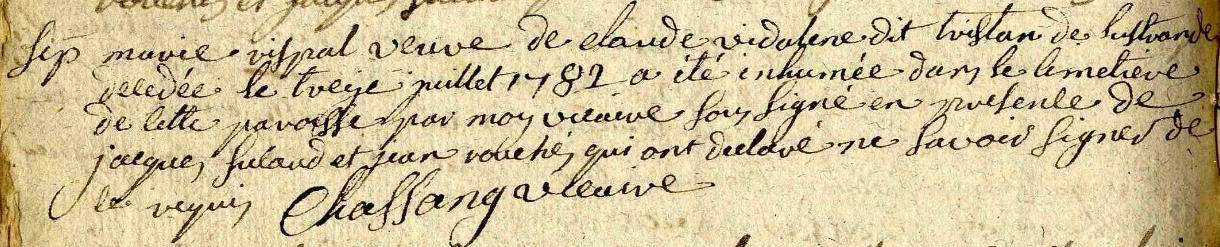 Sep marie vispal veuve de claude vidalene dit tristan de
decedée le treize juillet 1782 a été inhumée dans le cimetiere
de cette paroisse par moy vicaire sous signé en presence de
jacques et jean rouchés qui ont declaré ne savoir signer de
ce requis Chassang vicaire